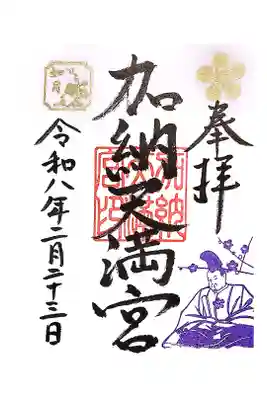 奉拝
加納天満宮
加納天満宮印
令和八年二月二十三日